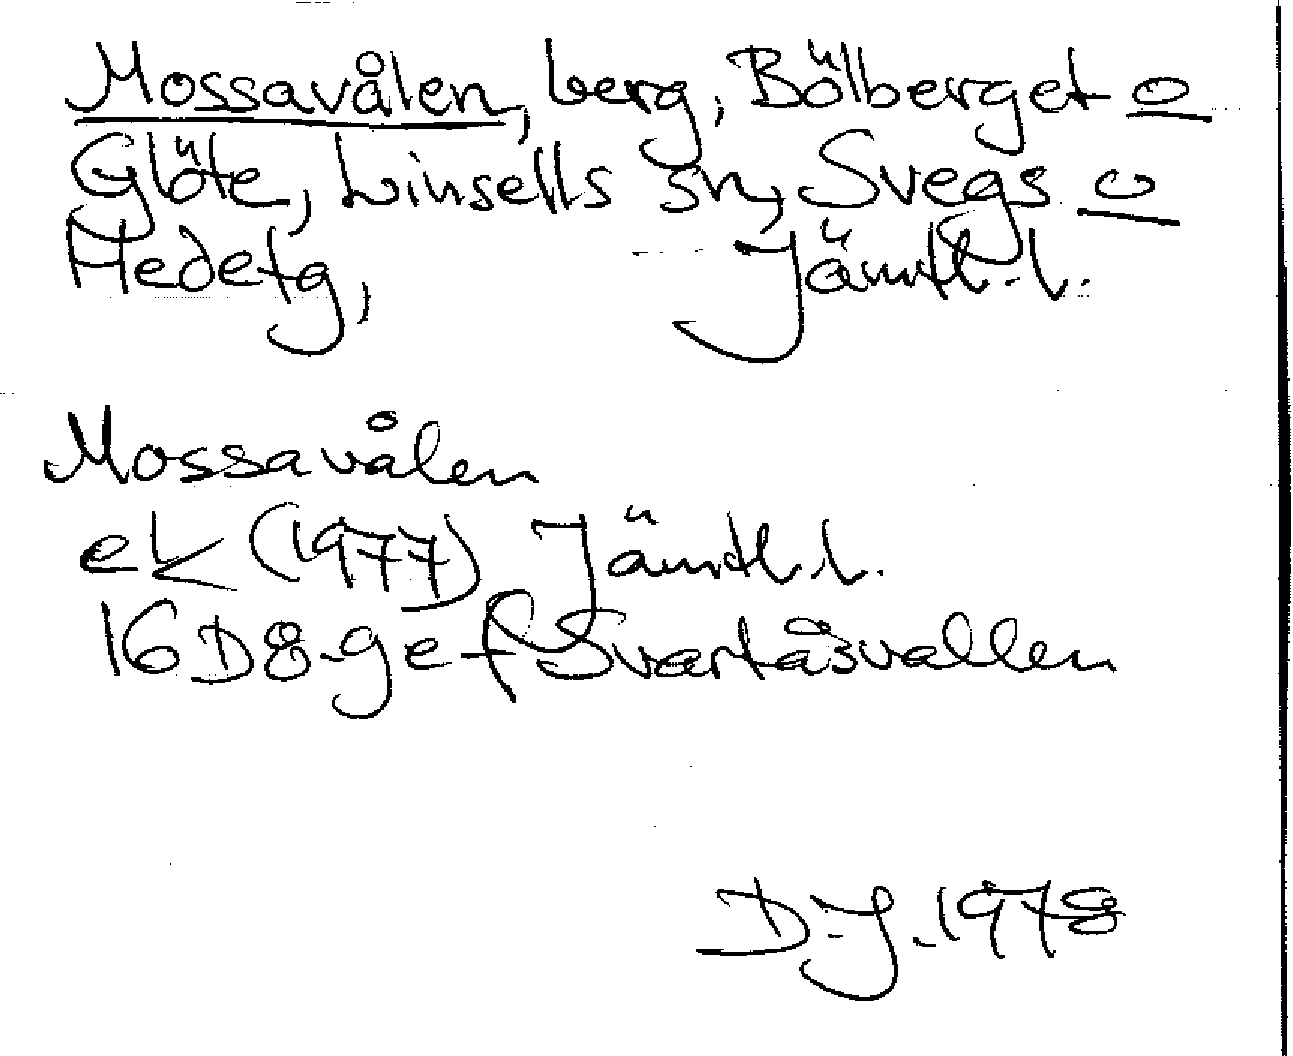 Mossavålen, berg, Bölberget o
Glöte, Linsells sn, Svegs o
Hedetg, Jämtl. l.
Mossavålen
ek (1977) Jämtl. l.
16D8-9ef Svartåsvallen
D.J. 1978